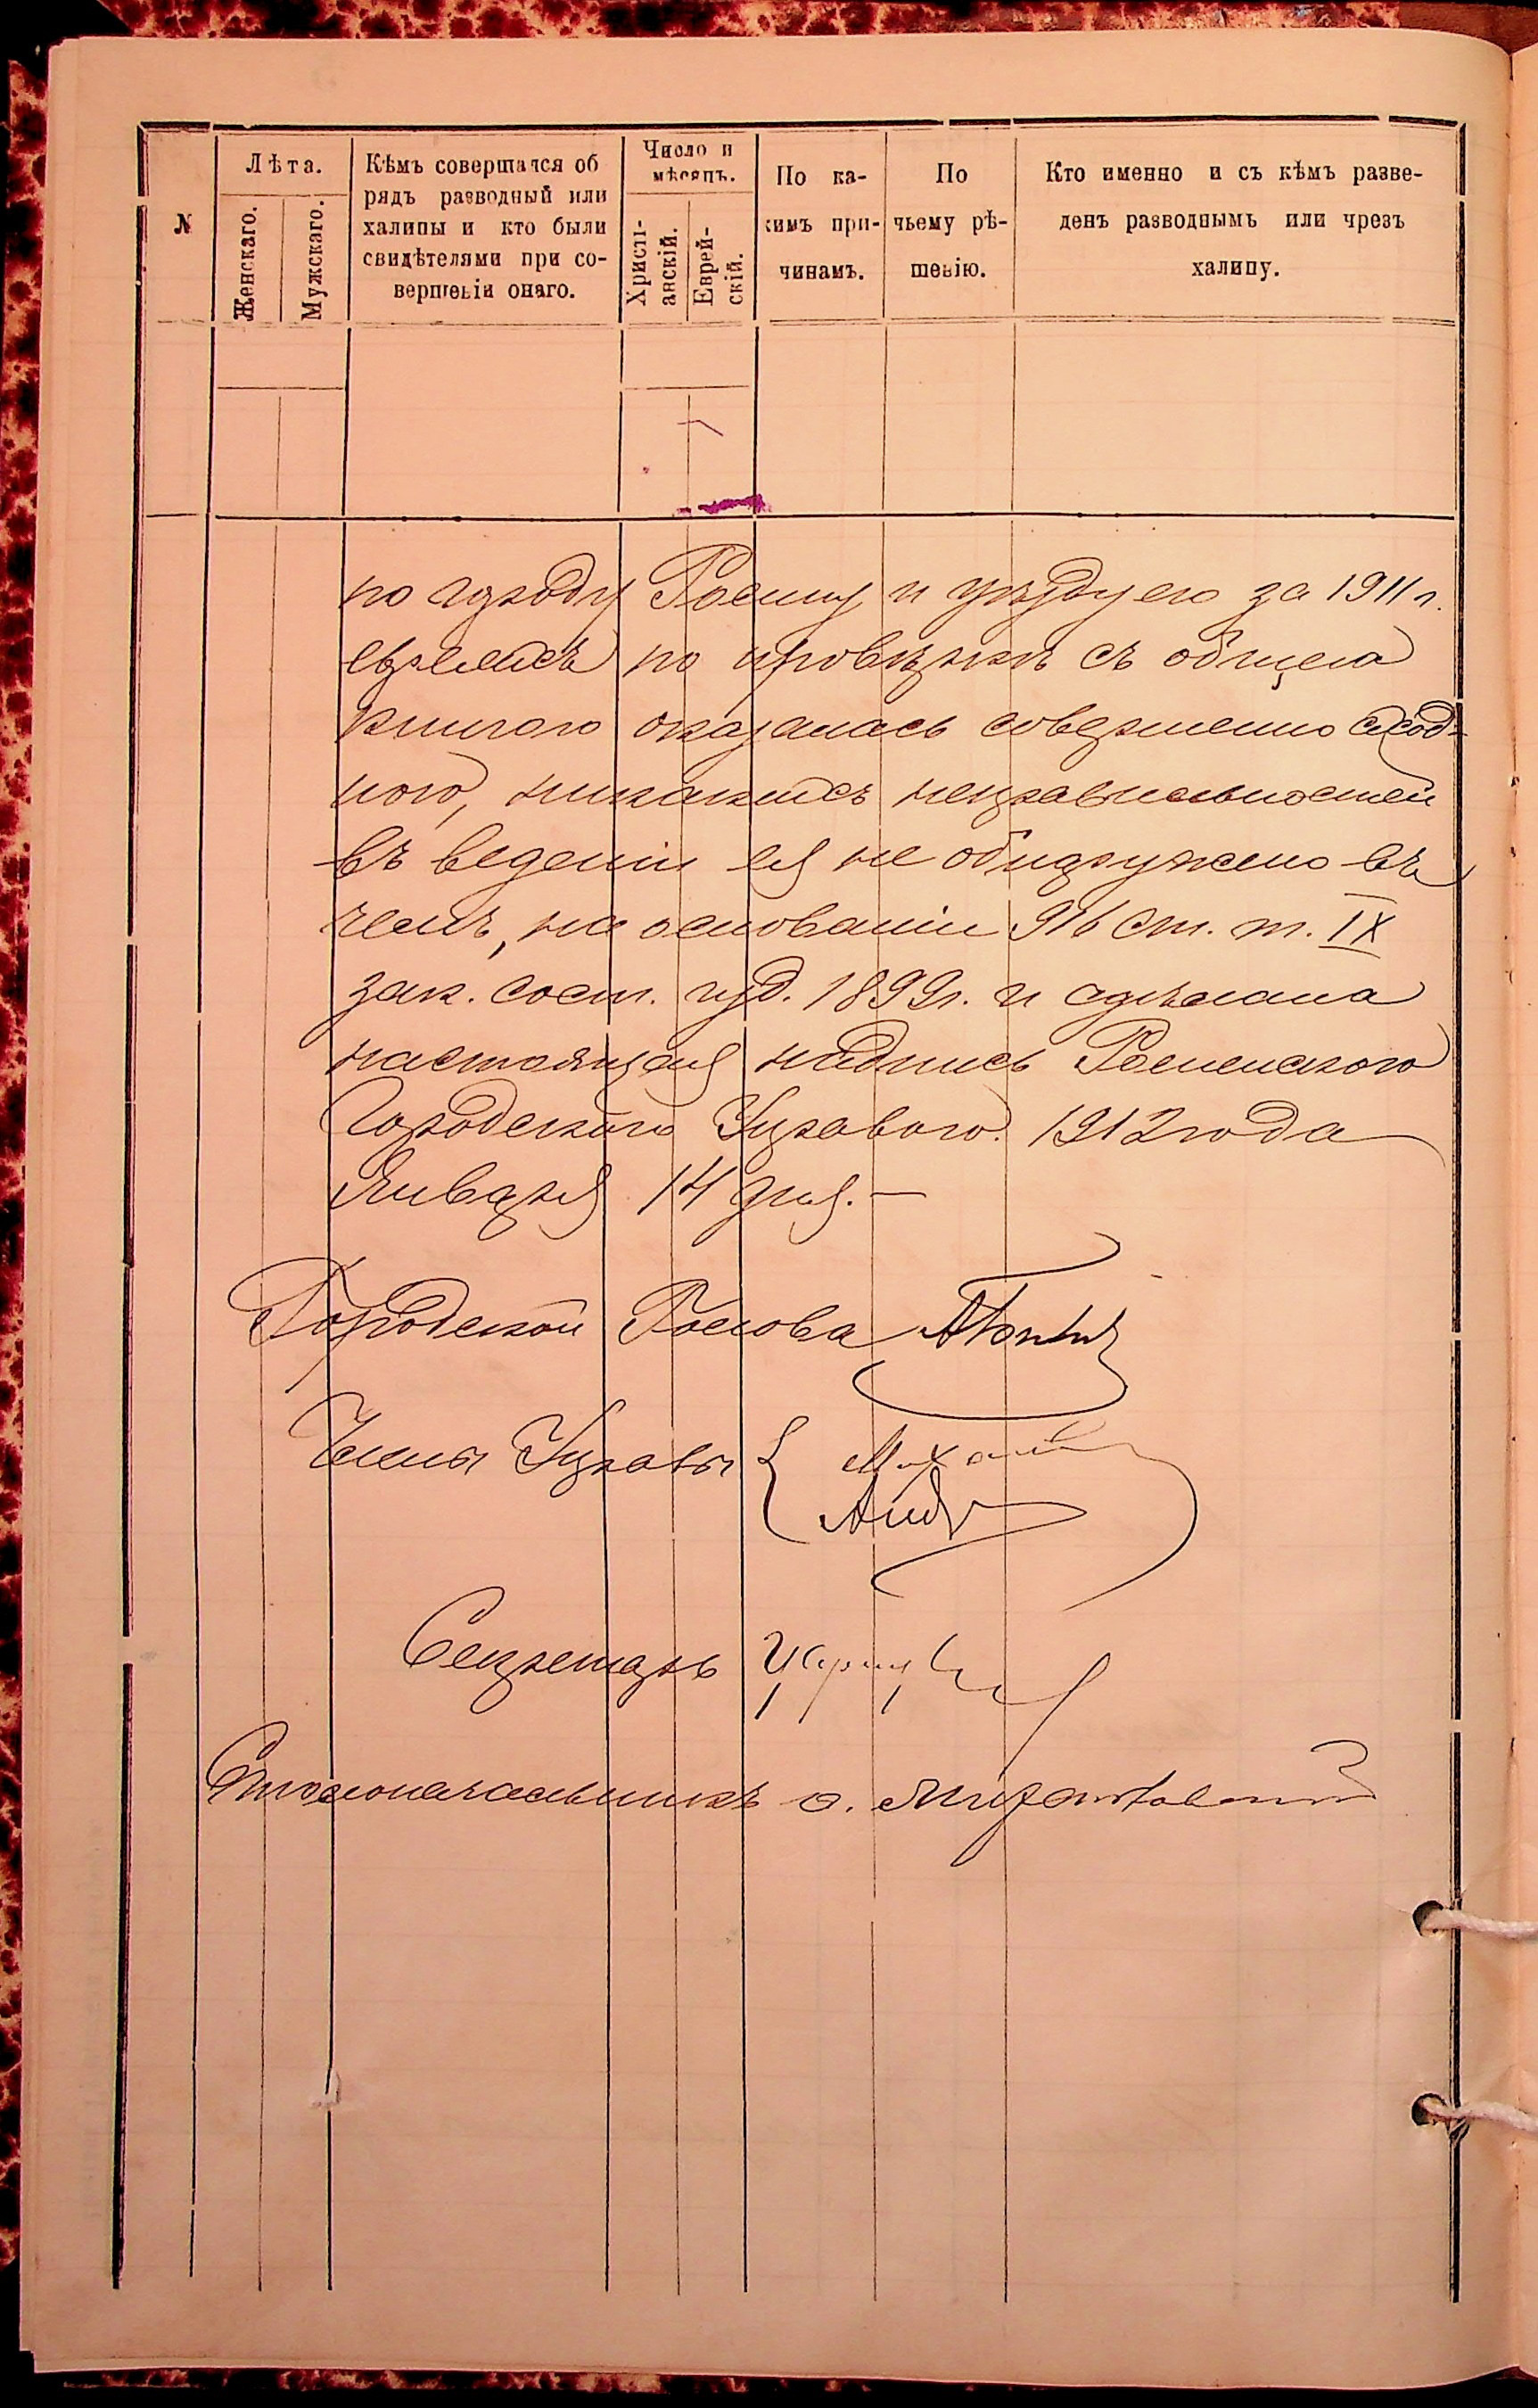 №
Лѣта.
Женскаго.
Мужскаго.
Кѣмъ совершался об
рядъ разводный или
халицы и кто были
свидѣтелями при со-
вершеніи онаго.
Число и
мѣсяцъ.
Христі-
анскій.
Еврей-
скій.
По ка-
кимъ при-
чинамъ.
По
чьему рѣ-
шенію.
Кто именно и съ кѣмъ разве-
денъ разводнымъ или чрезъ
халицу.
по городу Ромну и уѣзду его за 1911 г.
евреевъ по провѣркѣ съ общею
книгою оказалась совершенно сход-
ною, никакихъ неправильностей
въ веденіи ея не обнаружено въ
чемъ, на основаніи 916 ст. т. IX
зак. сост. изд. 1899 г. и сдѣлана
настоящая надпись Роменскою
Городскою Управою. 1912 года
Января 14 дня. —
Городской Голова
Члены Управы {
Секретарь
Столоначальникъ